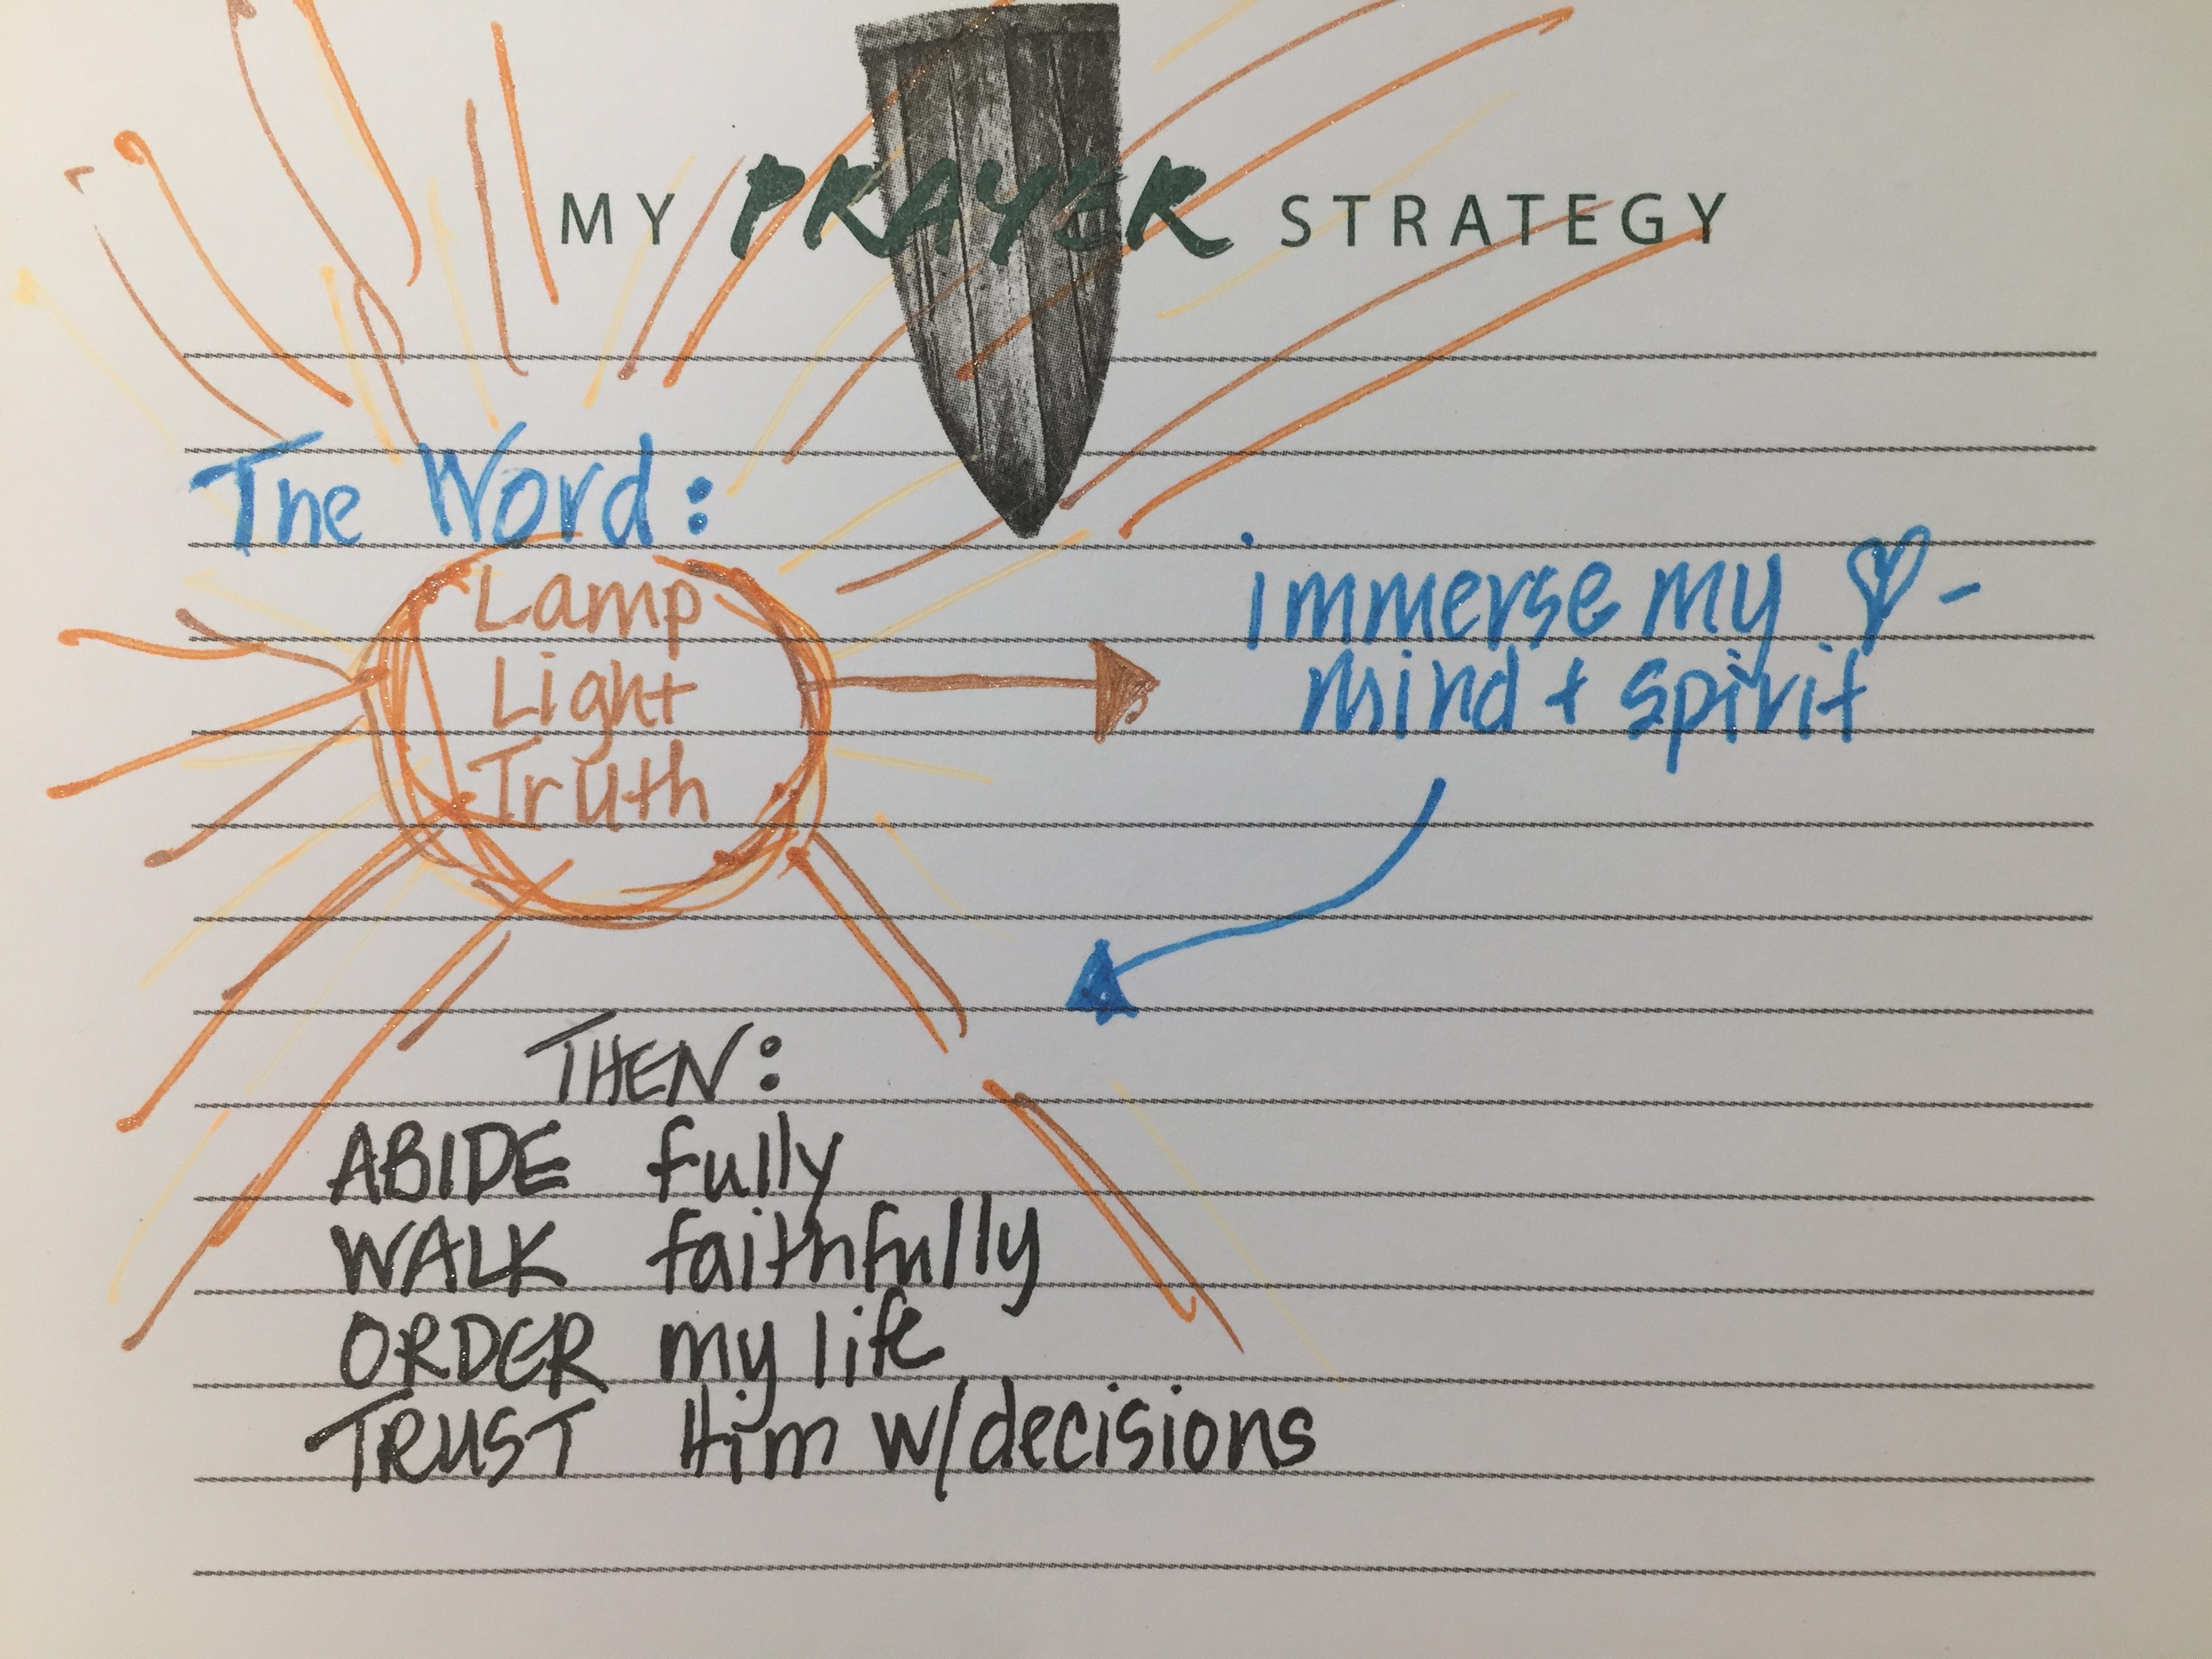 MY PRAYER STRATEGY
The Word:
Lamp
Light
Truth
immerse my ♡-
mind + spirit
THEN:
ABIDE fully
WALK faithfully
ORDER my life
TRUST Him w/decisions